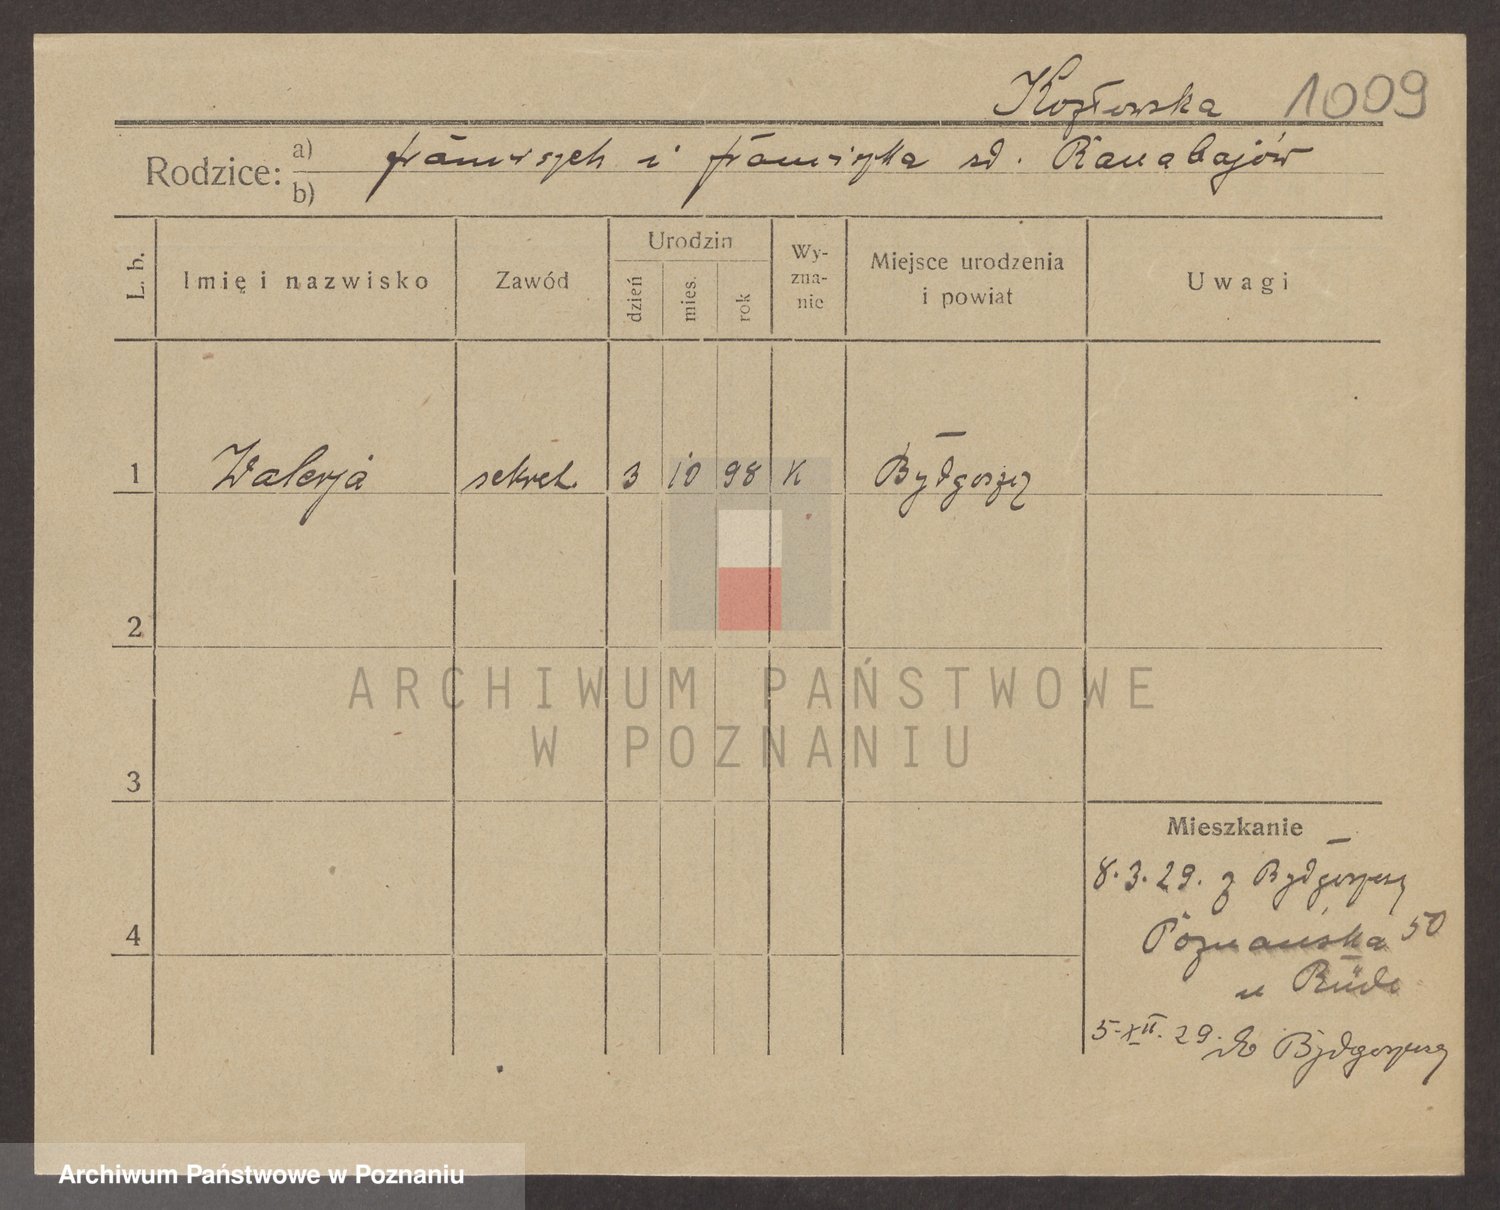 Kozłowska 1009
Rodzice: a) franciszek i franciszka zd. Ranabajów
b)
L. b. Imię i nazwisko Zawód Urodzin dzień mies. rok Wyznanie Miejsce urodzenia i powiat Uwagi
1 Walerja sekret. 3 10 98 K Bydgoszcz
2
ARCHIWUM PAŃSTWOWE
W POZNANIU
3
Mieszkanie
8.3.29. z Bydgoszczy
4
Poznańska 50
u
5-XII.29. do Bydgoszczy
Archiwum Państwowe w Poznaniu